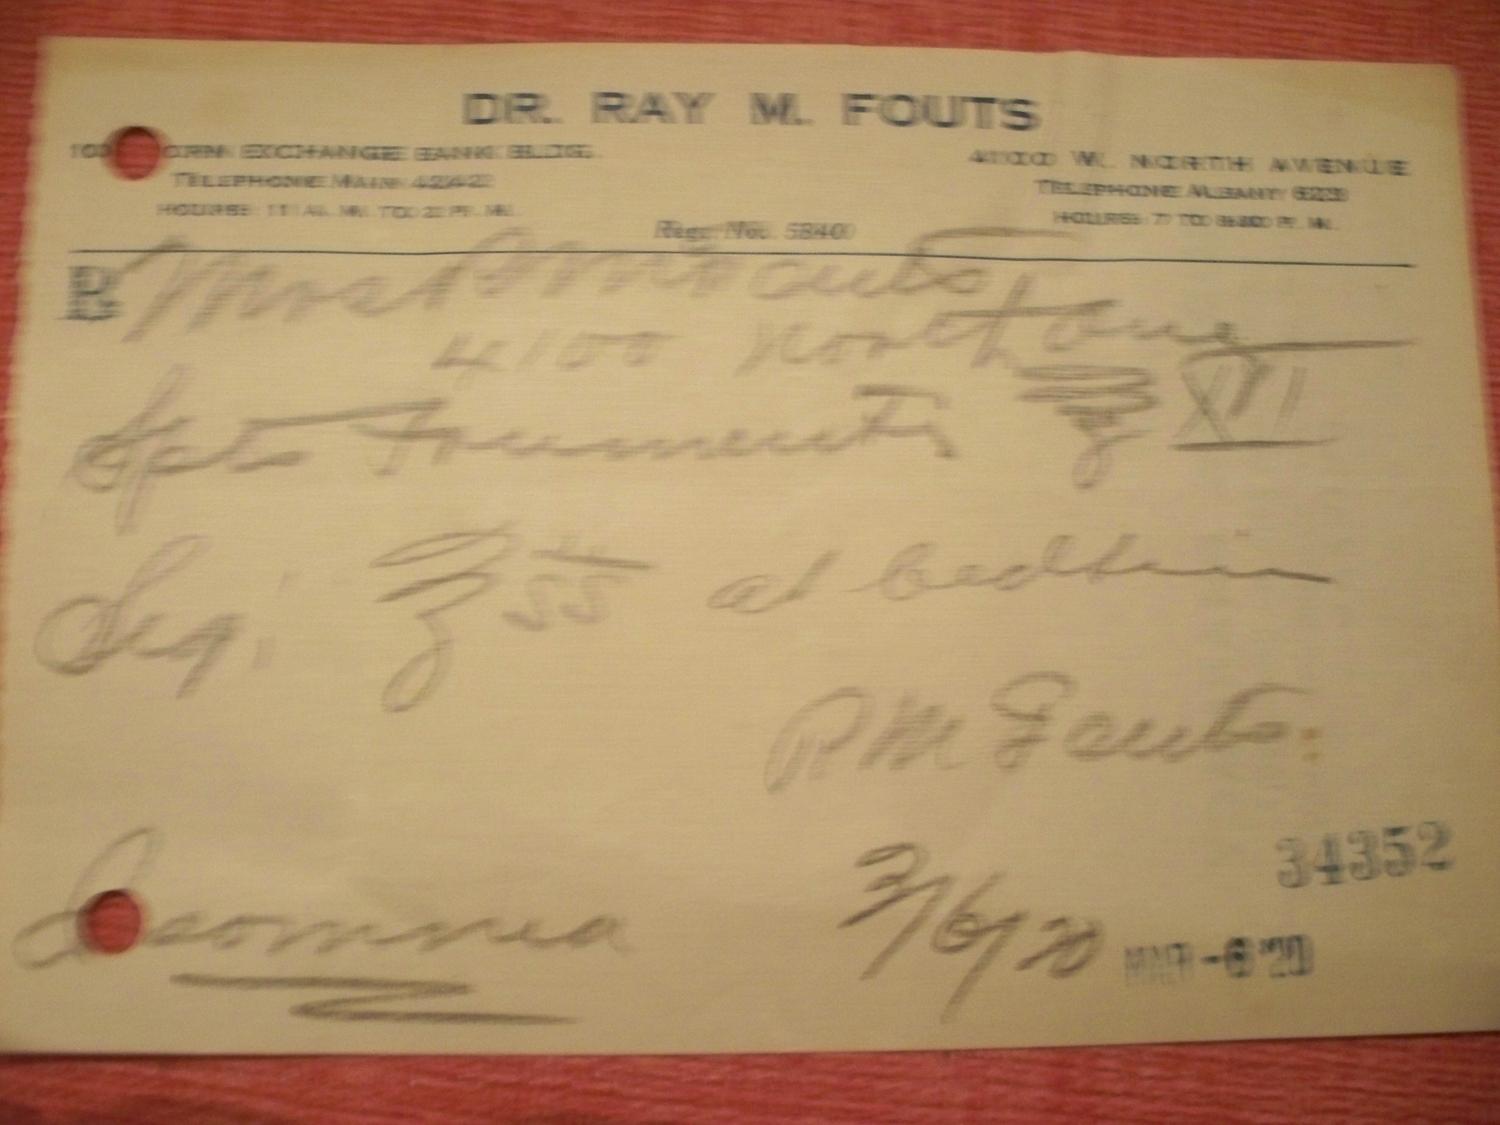 DR. RAY M. FOUTS
ORN EXCHANGE BANK BLDG.
TELEPHONE MAIN
HOURS: 11 A. M. TO 2 P. M.
4100 W. NORTH AVENUE
TELEPHONE ALBANY
HOURS: 7 TO P. M.
Reg. No. 58400
℞ Mrs R M Fouts
4100 North Ave
Spts Frumenti ℥ XVI
Sig: ℥ ss at bedtime
R M Fouts
34352
Insomnia
3/6/20
MAR -6 '20